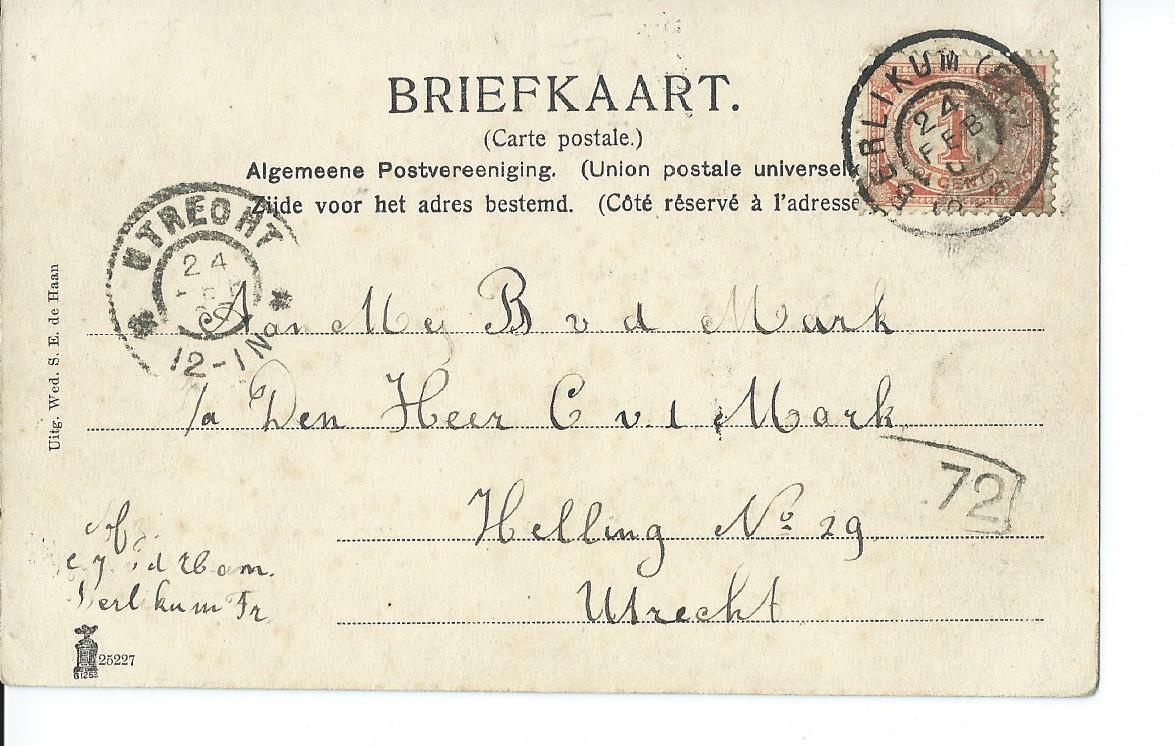 BRIEFKAART.
(Carte postale.)
Algemeene Postvereeniging. (Union postale universel
Zijde voor het adres bestemd. (Côté réservé à l'adresse
BERLIKUM
24
FEB
1
CENT
UTRECHT
24
12-1N
Aan Mej B v d Mark
p/a Den Heer C v. d Mark
72
Helling No 29
Utrecht
Afz
Berlikum Fr
Uitg. Wed. S. E. de Haan
25227